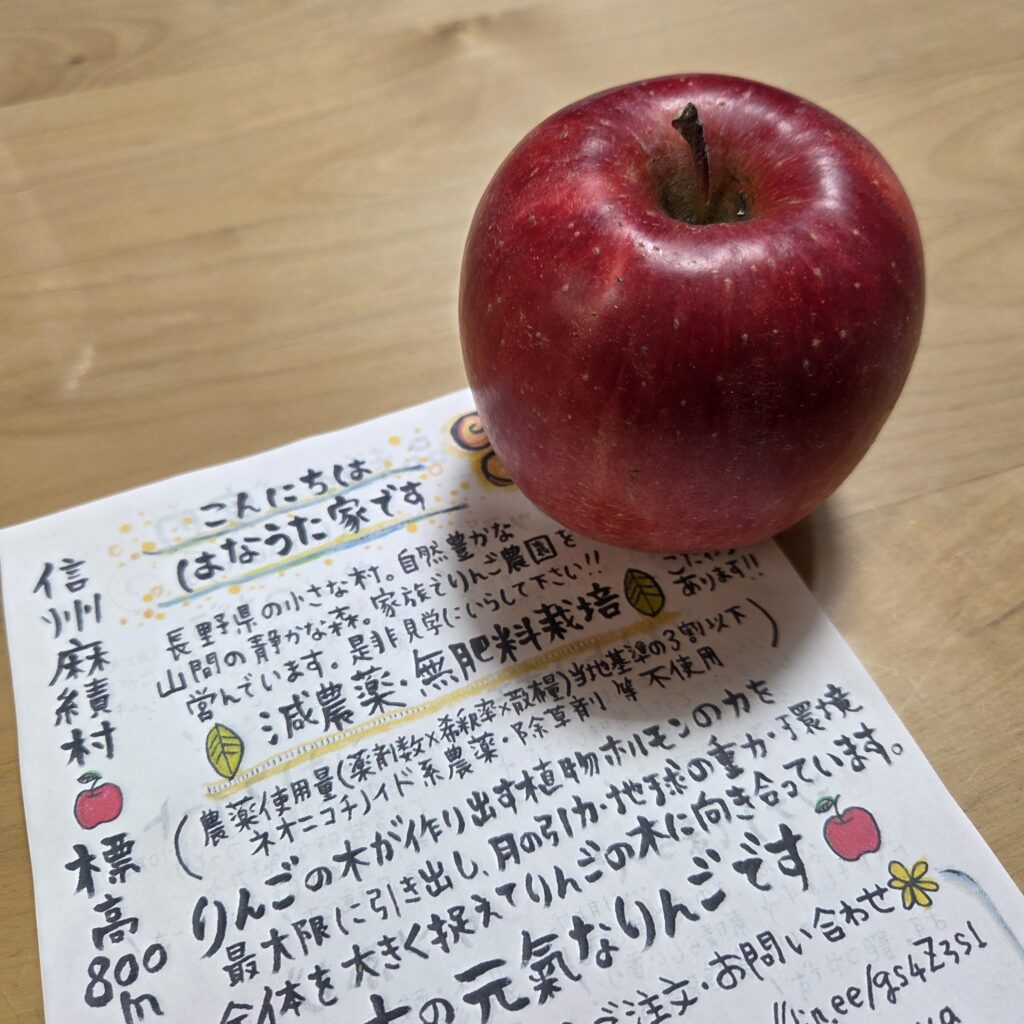 こんにちは
はなうた家です
信州麻績村
標高800m
長野県の小さな村。自然豊かな
山間の静かな森。家族でりんご農園を
営んでいます。是非見学にいらして下さい!!
減農薬・無肥料栽培
あります!!
(農薬使用量(薬剤数×希釈率×散布量)当地基準の3割以下
ネオニコチノイド系農薬・除草剤 等 不使用)
りんごの木が作り出す植物ホルモンの力を
最大限に引き出し、月の引力・地球の重力・環境
全体を大きく捉えてりんごの木に向き合っています。
の元氣なりんごです
ご注文・お問い合わせ
lin.ee/gs4Z3S1